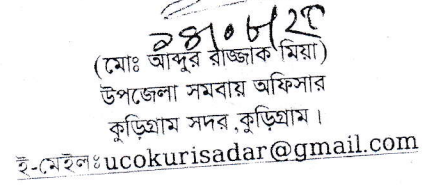 (মোঃ আব্দুর রাজ্জাক মিয়া)
উপজেলা সমবায় অফিসার
কুড়িগ্রাম সদর,কুড়িগ্রাম।
ই-মেইলঃucokurisadar@gmail.com